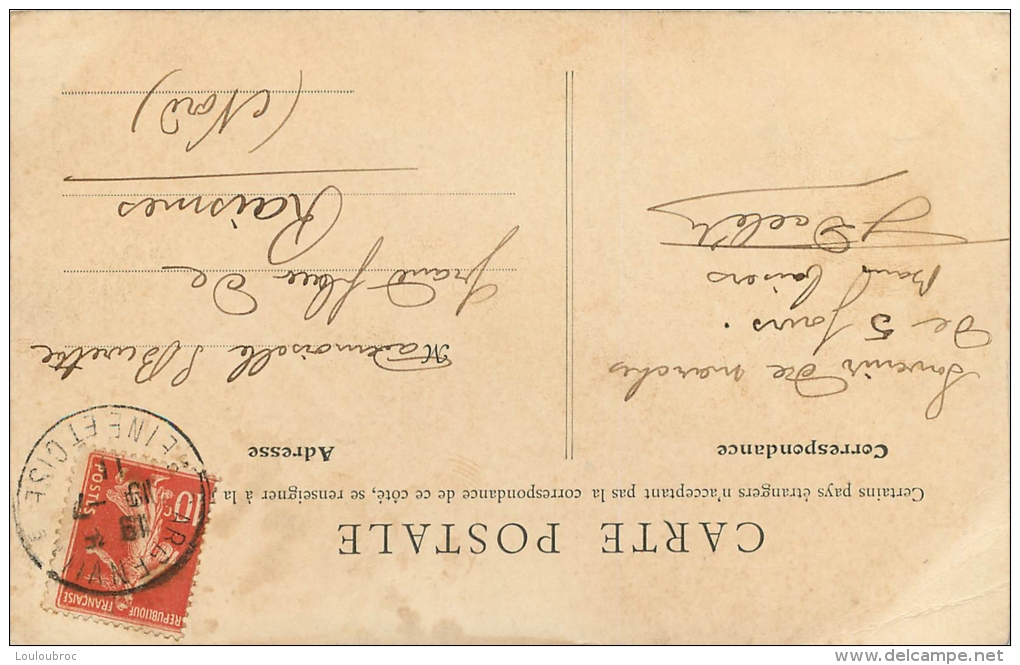 CARTE POSTALE
Certains pays étrangers n'acceptant pas la correspondance de ce côté, se renseigner à la
Correspondance
Adresse
Souvenir de marche
De 5 Jours.
Baisers
Mademoiselle
Grand place De
Raismes
(Nord)
REPUBLIQUE FRANÇAISE
10
POSTES
ARGENVI
SEINE ET OISE
Louloubroc
www.delcampe.net